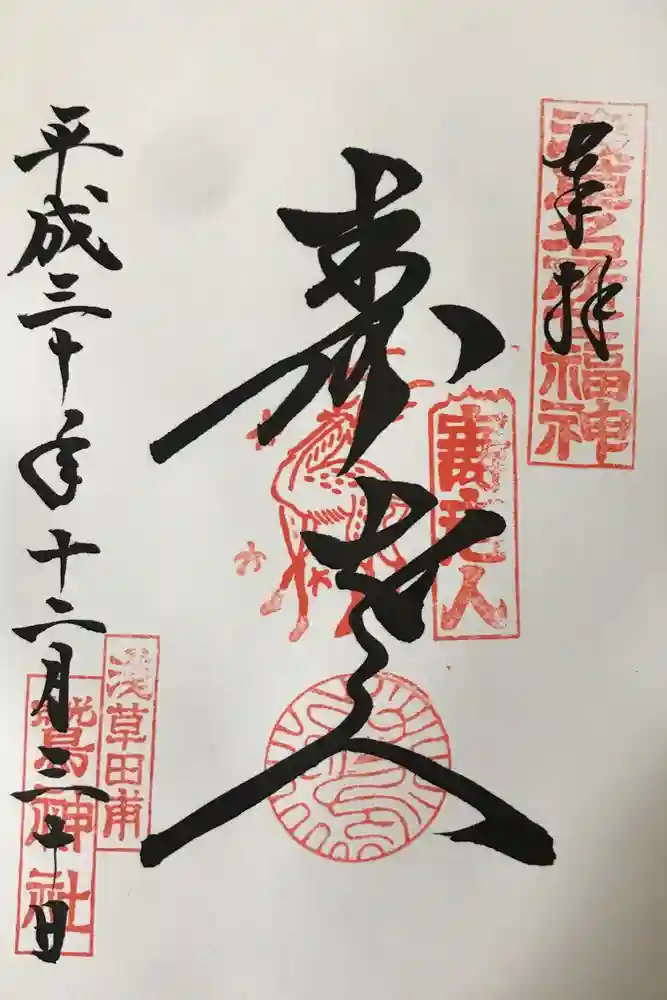 奉拝
淺草名所七福神
寿老人
壽老人
淺草田甫
鷲神社
平成三十年十二月三十日